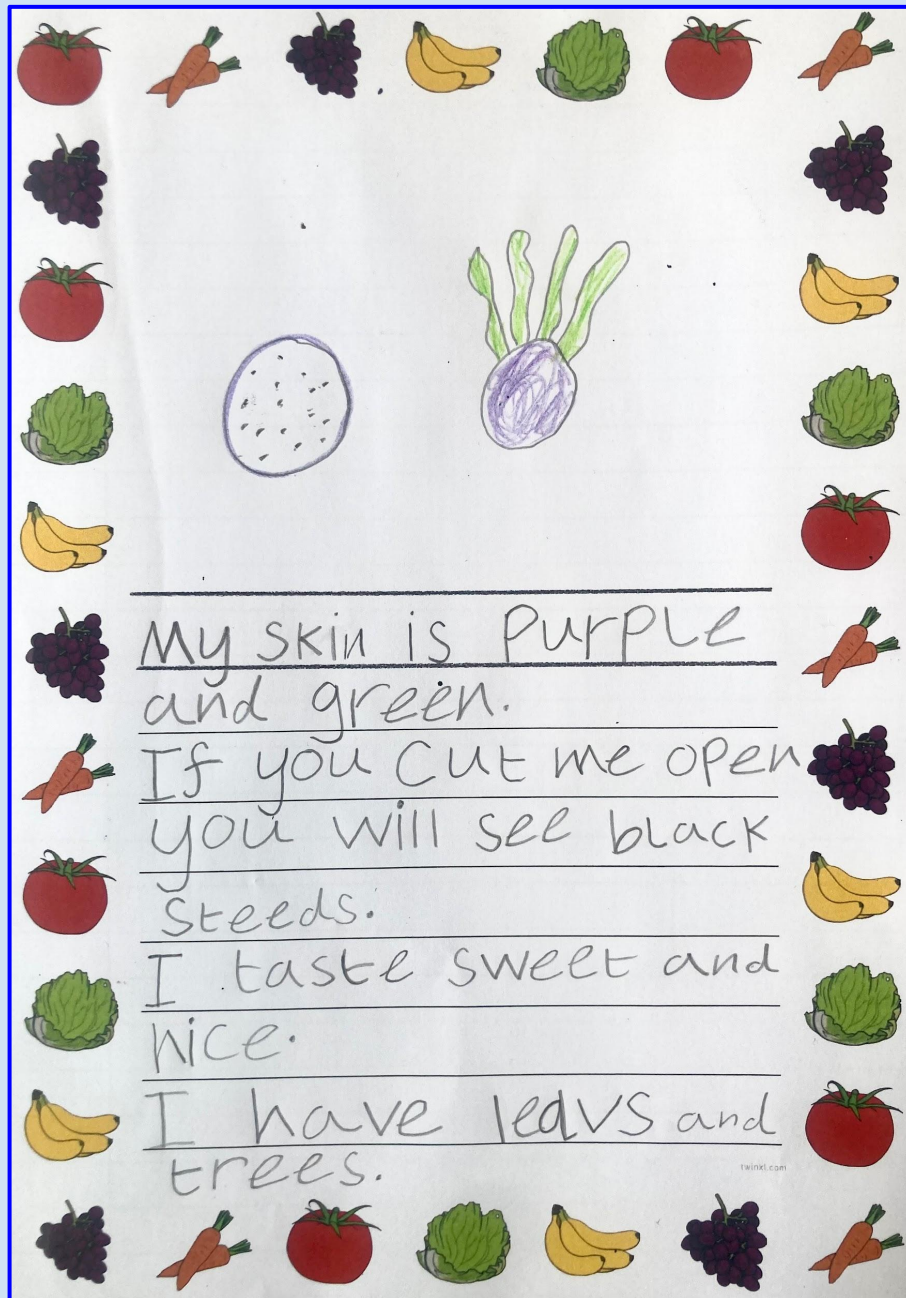 My skin is purple
and green.
If you cut me open
you will see black
steeds.
I taste sweet and
nice.
I have leavs and
trees.
twinkl.com